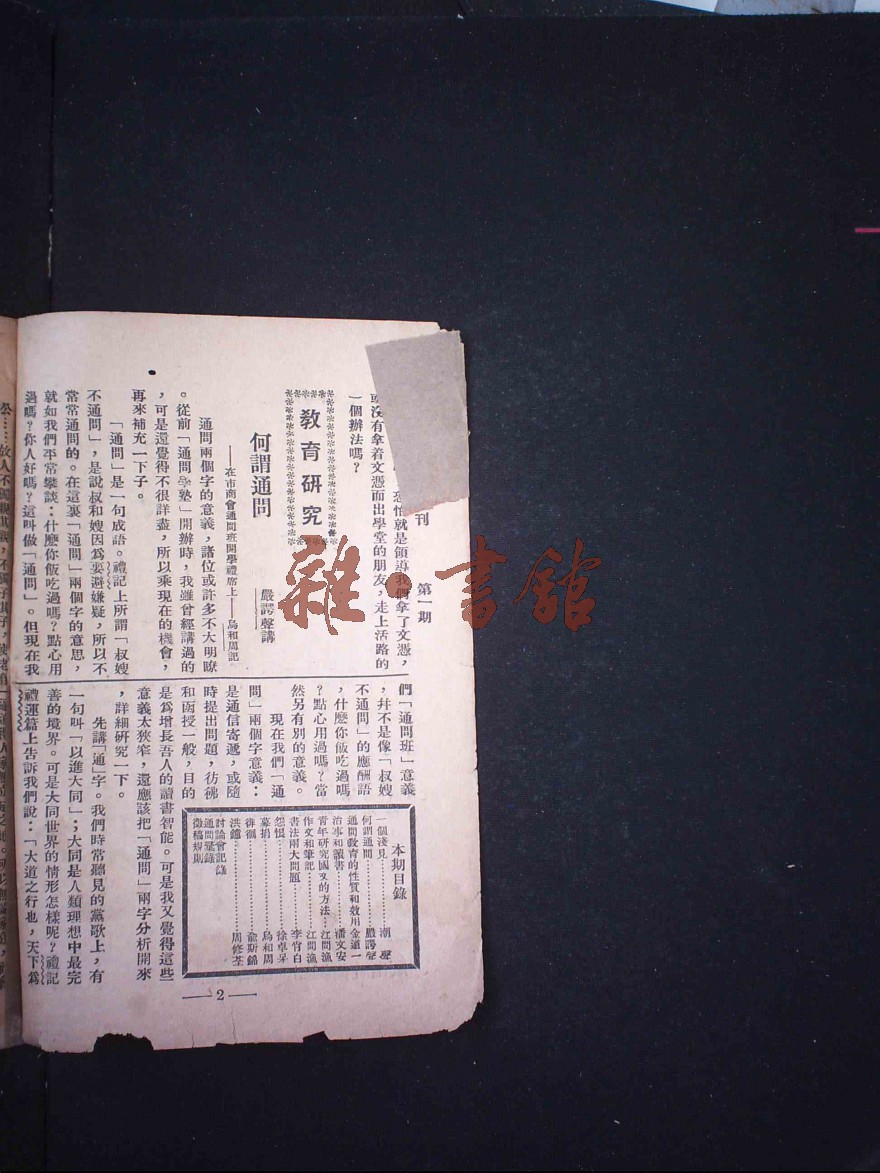 刊　第一期
恐怕就是領導我們拿了文憑，
沒有拿着文憑而出學堂的朋友，走上活路的
一個辦法嗎？
教育研究
何謂通問
嚴諤聲講
——在市商會通問班開學禮席上——烏和周記
通問兩個字的意義，諸位或許多不大明瞭
。從前「通問學塾」開辦時，我雖曾經講過的
，可是還覺得不很詳盡，所以乘現在的機會，
再來補充一下子。
「通問」是一句成語。禮記上所謂「叔嫂
不通問」，是說叔和嫂因為要避嫌疑，所以不
常常通問的。在這裏「通問」兩個字的意思，
就如我們平常攀談：什麼你飯吃過嗎？點心用
過嗎？你人好嗎？這叫做「通問」。但現在我
們「通問班」意義
，幷不是像「叔嫂
不通問」的應酬語
，什麼你飯吃過嗎
？點心用過嗎？當
然另有別的意義。
現在我們「通
問」兩個字意義：
是通信寄遞，或隨
時提出問題，彷彿
和函授一般，目的
是為增長吾人的讀書智能。可是我又覺得這些
意義太狹窄，還應該把「通問」兩字分析開來
，詳細研究一下。
先講「通」字。我們時常聽見的黨歌上，有
一句叫「以進大同」；大同是人類理想中最完
善的境界。可是大同世界的情形怎樣呢？禮記
禮運篇上告訴我們說：「大道之行也，天下為
本期目錄
一個淺見……潮聲
何謂通問……嚴諤聲
通問教育的性質和效用 金道一
治事和讀書……潘文安
青年研究國文的方法…江問漁
作文和筆記……江問漁
書法兩大問題……李肖白
怨恨……徐卓呆
募捐……烏和周
徘徊……俞斯錦
洪鑪……周修荃
討論會記錄
通問彙錄
徵稿規則
——2——
雜·書館